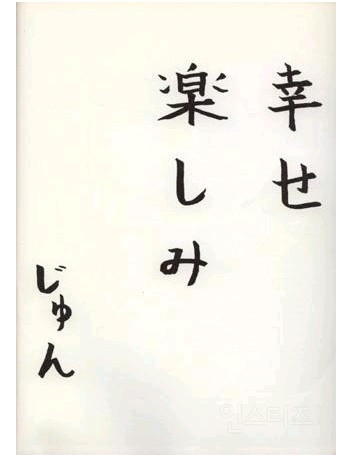 幸せ
楽しみ
じゅん
인스티즈